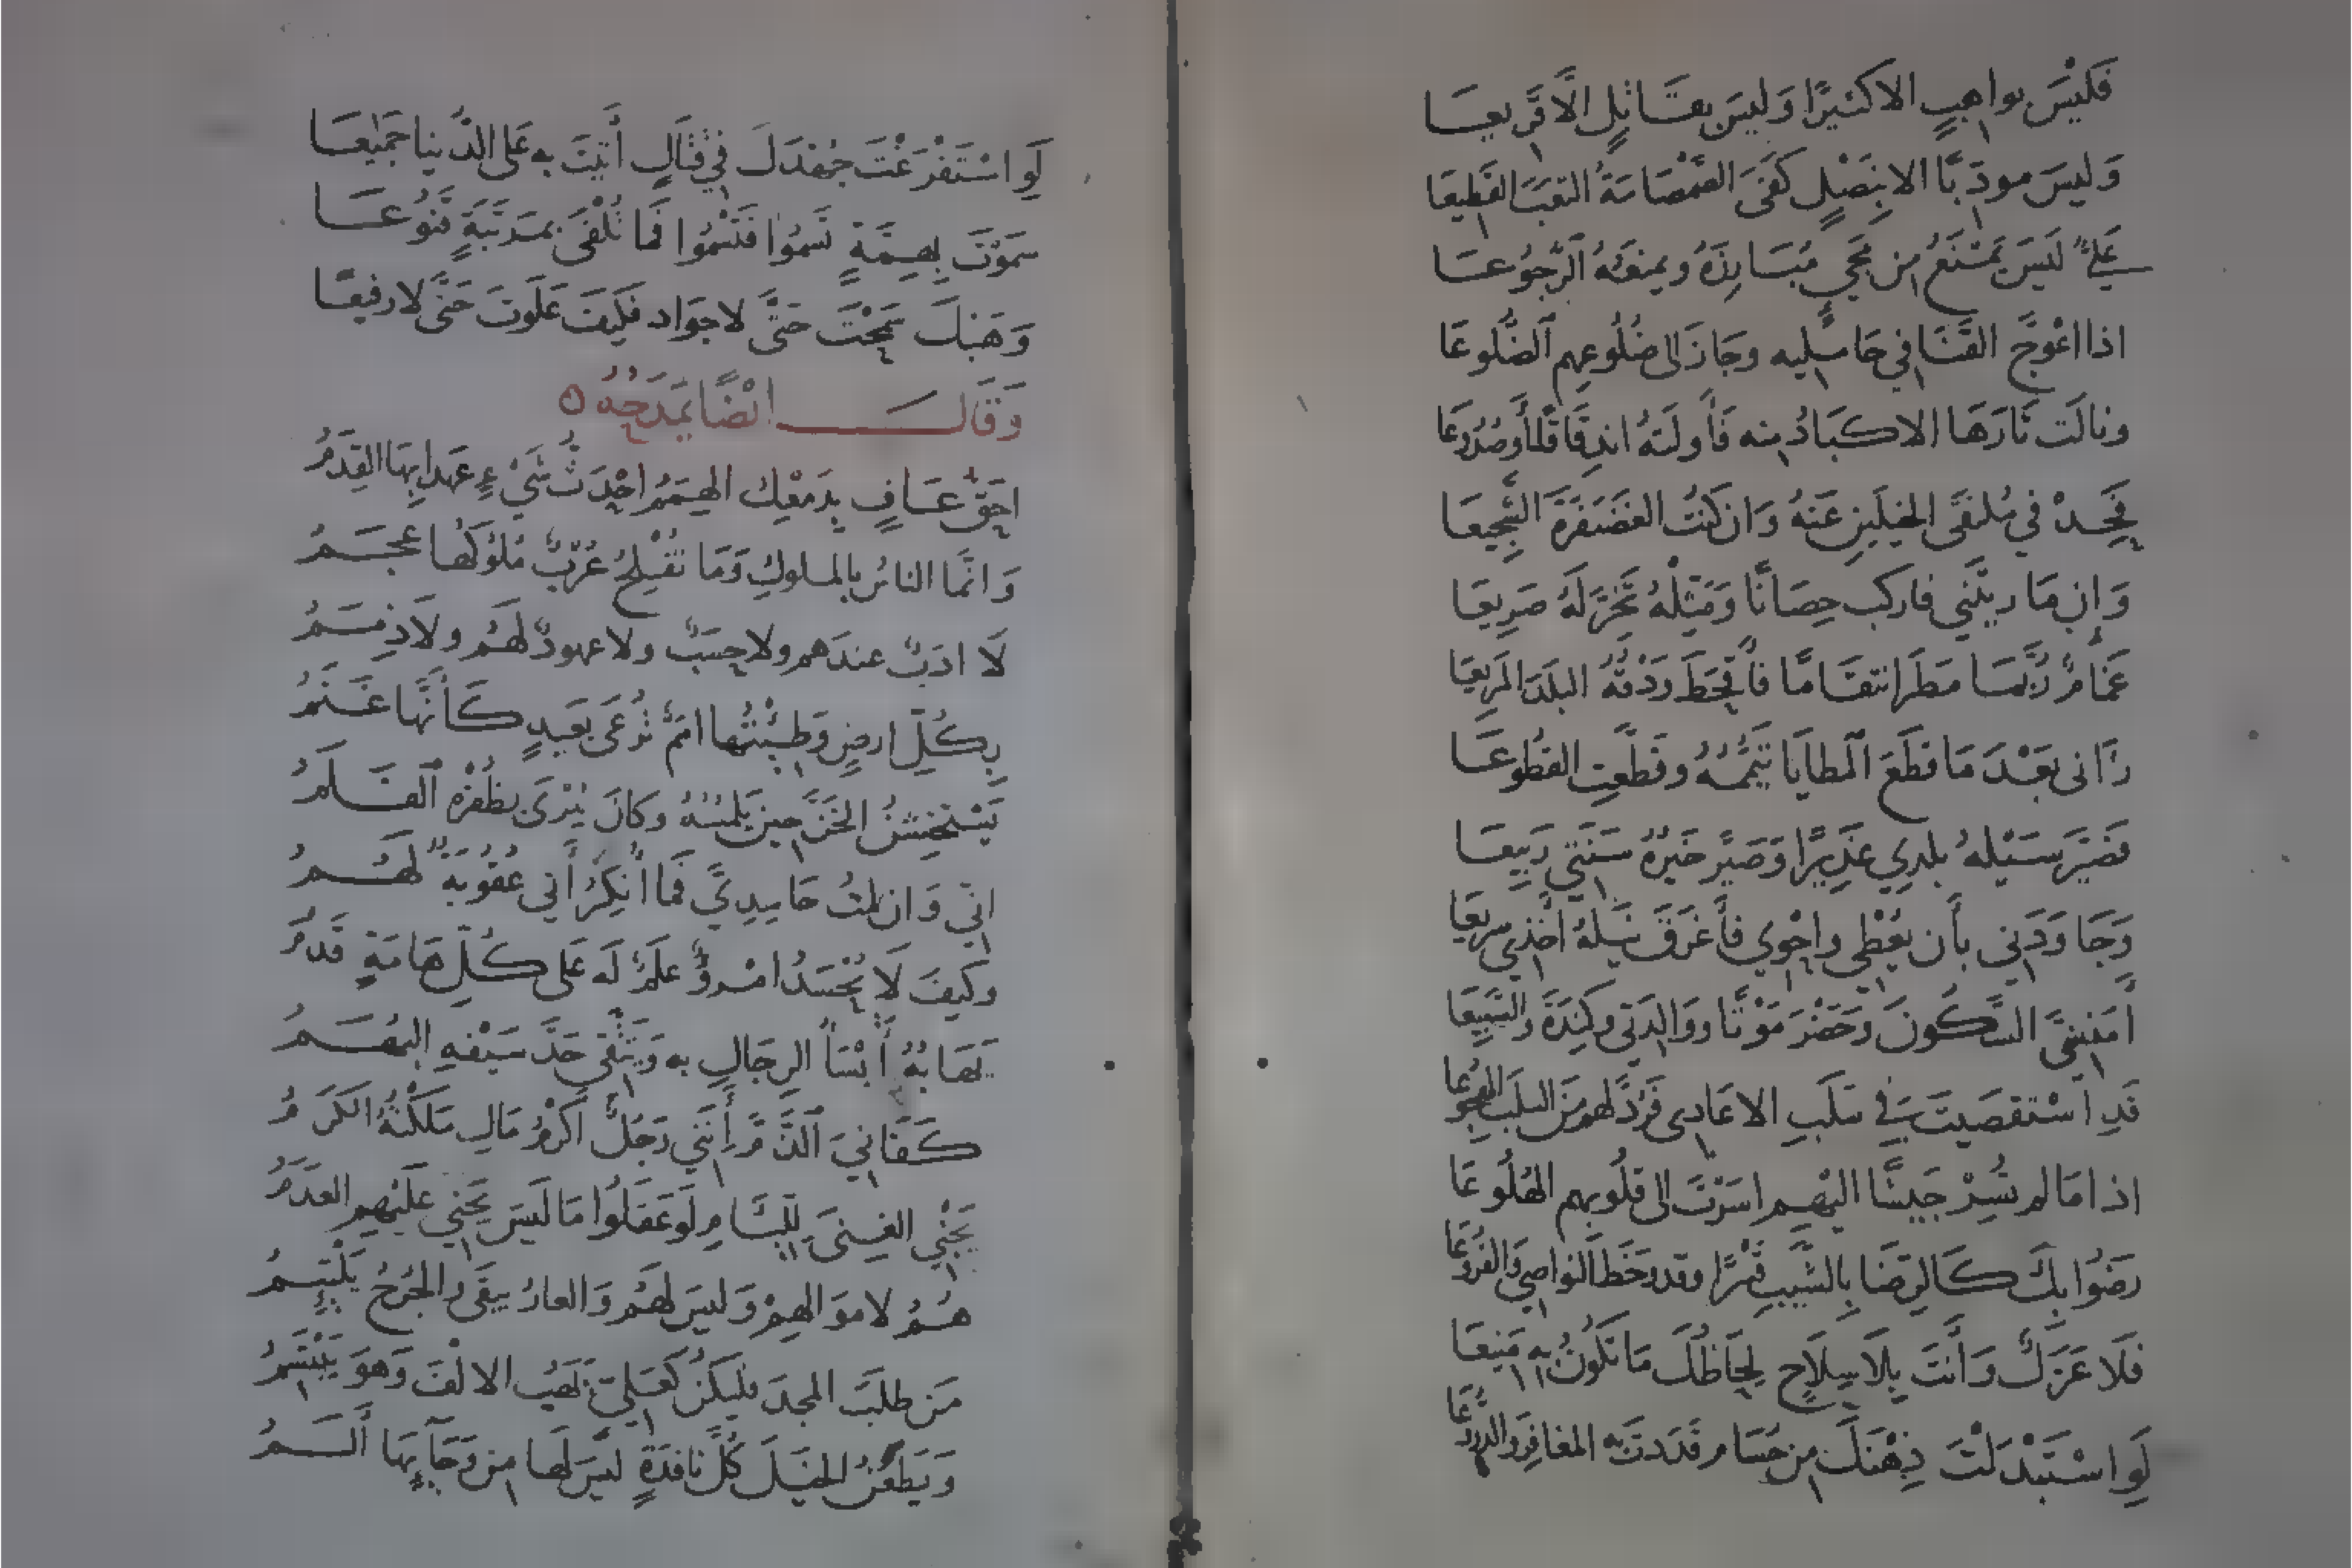 فَلَيْسَ بواهبٍ الا كثيرًا وَليسَ بقَاتلٍ الَّا قَريعَا
وَليسَ مودّبًا الا بِنَصْلٍ كَفَى الصَّمْصَامَةُ التعَبَ القَطيعَا
عَليٌّ لَيسَ يَمْنَعُ مِن مَجيٍ مُبَارِزَهُ ويمنعُهُ الرُّجوُعَا
اذا اعْوَجَّ القَنَا في حَامِليه وجَازَ الى ضُلُوعهم الضُّلُوعَا
ونالَت ثَارَهَا الاكبَادُ منه فَأَولَتهُ اندِقَاقًا أَوصُدُوعَا
فَحِدْ في مُلتقَى الخيلَينِ عَنهُ وَان كنتُ الغضَنفرَةَ الشَّجِيعَا
وَإن مَاريتَني فاركَب حِصَانًا وَمَثِلْهُ تَخِرَّ لَهُ صَرِيعَا
غَمَامٌ رُبَّمَا مَطَرَ انتقَامًا فأَقحَطَ وَدْقُهُ البلَدَ المَرِيعَا
رَآنى بَعْدَ مَا قطَعَ المطايَا تَيَمُّمُهُ وقَطَّعتِ القُطُوعَا
فَصَيَّرَ سَيْلهُ بلدِي غَدِيرًا وَصَيَّر خَيرُهُ سَنَتي رَبيعَا
وَجَاوَدَني بأَن يُعْطي واحْوي فأَغرَقَ نَيلَهُ اخْذي سريعَا
أَمُنسِيَّ السَّكُونَ وَحَضْرَ مَوْتًا ووَالِدَتي وَكِندَةَ وَالسَّبِيعَا
قَدِ اسْتقصَيتَ في سَلَبِ الاعَادى فَرُدَّ لهم مِنَ السَّلَبِ الهُجُوعَا
اذا مَا لم تُسِرْ جَيشًا اليْهِم اسَرْتَ الى قلُوبهم الهُلُوعَا
رَضُوا بِكَ كَالرِّضَا بِالشَّيبِ قَسْرًا وقد وَخَطَ النواصِي وَالفُرُوعَا
فَلَا عَزَلٌ وَأَنتَ بِلَا سِلَاحٍ لِحَاظُكَ مَا تَكُونُ بِهِ مَنيعَا
لَوِ اسْتَبْدَلْتَ ذِهْنَكَ مِن حُسَامٍ قَدَدتَ به المغافِرَ والدُّرُوعَا
لَوِ اسْتَفْرَغْتَ جُهْدَكَ في قِتَالٍ أَتيْتَ به عَلى الدُّنيا جَميعَا
سَمَوْتَ بِهِمَّةٍ تَسمُوا فَتَسْمُوا فَمَا تُلْفَى بمَرْتَبَةٍ قَنوُعَا
وَهَبْكَ سَمَحْتَ حَتَّى لا جوَاد فكَيفَ عَلَوتَ حَتَّى لا رفيعَا
وَقَالَ ايْضًا يَمْدَحُهُ ٥
احَقُّ عَافٍ بِدَمْعِكَ الهِمَمُ احْدَثُ شَيْءٍ عَهدا بِهَا القِدَمُ
وَانَّمَا الناسُ بالملوكِ وَمَا تُفْلِحُ عُرْبٌ مُلوُكُهَا عَجَمُ
لَا ادَبٌ عندَهم ولا حسَبٌ ولا عهودٌ لَهُم ولَا ذِمَمُ
بِكُلِّ ارضٍ وَطِئْتُها امَمٌ تُرْعَى بعَبدٍ كَأَنَّها غَنَمُ
يَسْتخشِنُ الخَزَّ حِينَ يَلمسُهُ وَكانَ يُبْرَى بظُفْرِه القَلَمُ
انّي وَان لمتُ حَاسِدِيَّ فَمَا أُنكِرُ أَني عُقُوبَةٌ لَهُمُ
وكَيفَ لَا يُحْسَدُ امْرؤٌ عَلَمٌ لَه عَلى كُلِّ هَامَةٍ قَدَمُ
يَهَابُهُ أَبْسَأُ الرِجَالِ به وَيَتَّقي حَدَّ سَيْفهِ البُهَمُ
كَفَانيَ الذَّمَّ أَنَّني رَجُلٌ اكْرَمُ مَالٍ مَلَكْتُهُ الكَرَمُ
يَجْنِي الغِنىَ لِلِّئَامِ لَو عَقَلُوا مَا لَيسَ يَجْنِي عَلَيْهِمِ العَدَمُ
هُمُ لامْوَالهِمْ وَليسَ لهُم وَالعارُ يبقَى والجُرحُ يَلْتَئِمُ
مَن طلَبَ المجدَ فليَكُن كَعَلِيّ يَهَبُ الالْفَ وَهوَ يَبْتَسِمُ
وَيَطعُنُ الخيَلَ كُلَّ نافذةٍ ليسَ لهَا مِن وَحَآئِهَا أَلَمُ